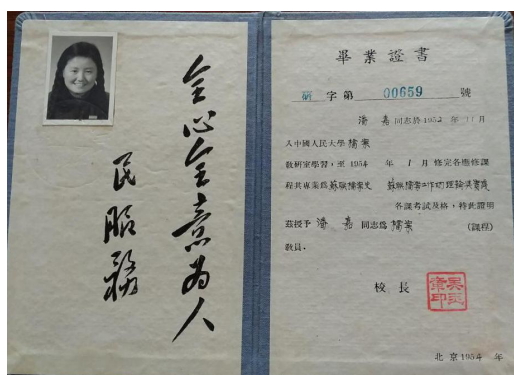 全心全意为人
民服務
畢業證書
研 字第 00659 號
潘嘉同志於1952年11月
入中國人民大學檔案
教研室學習,至1954 年1月修完各應修課
程共專業爲蘇聯檔案史 蘇聯檔案工作的理論與實踐
各課考試及格,特此證明
茲授予潘嘉同志爲檔案 (課程)
教員.
校長
北京1954 年